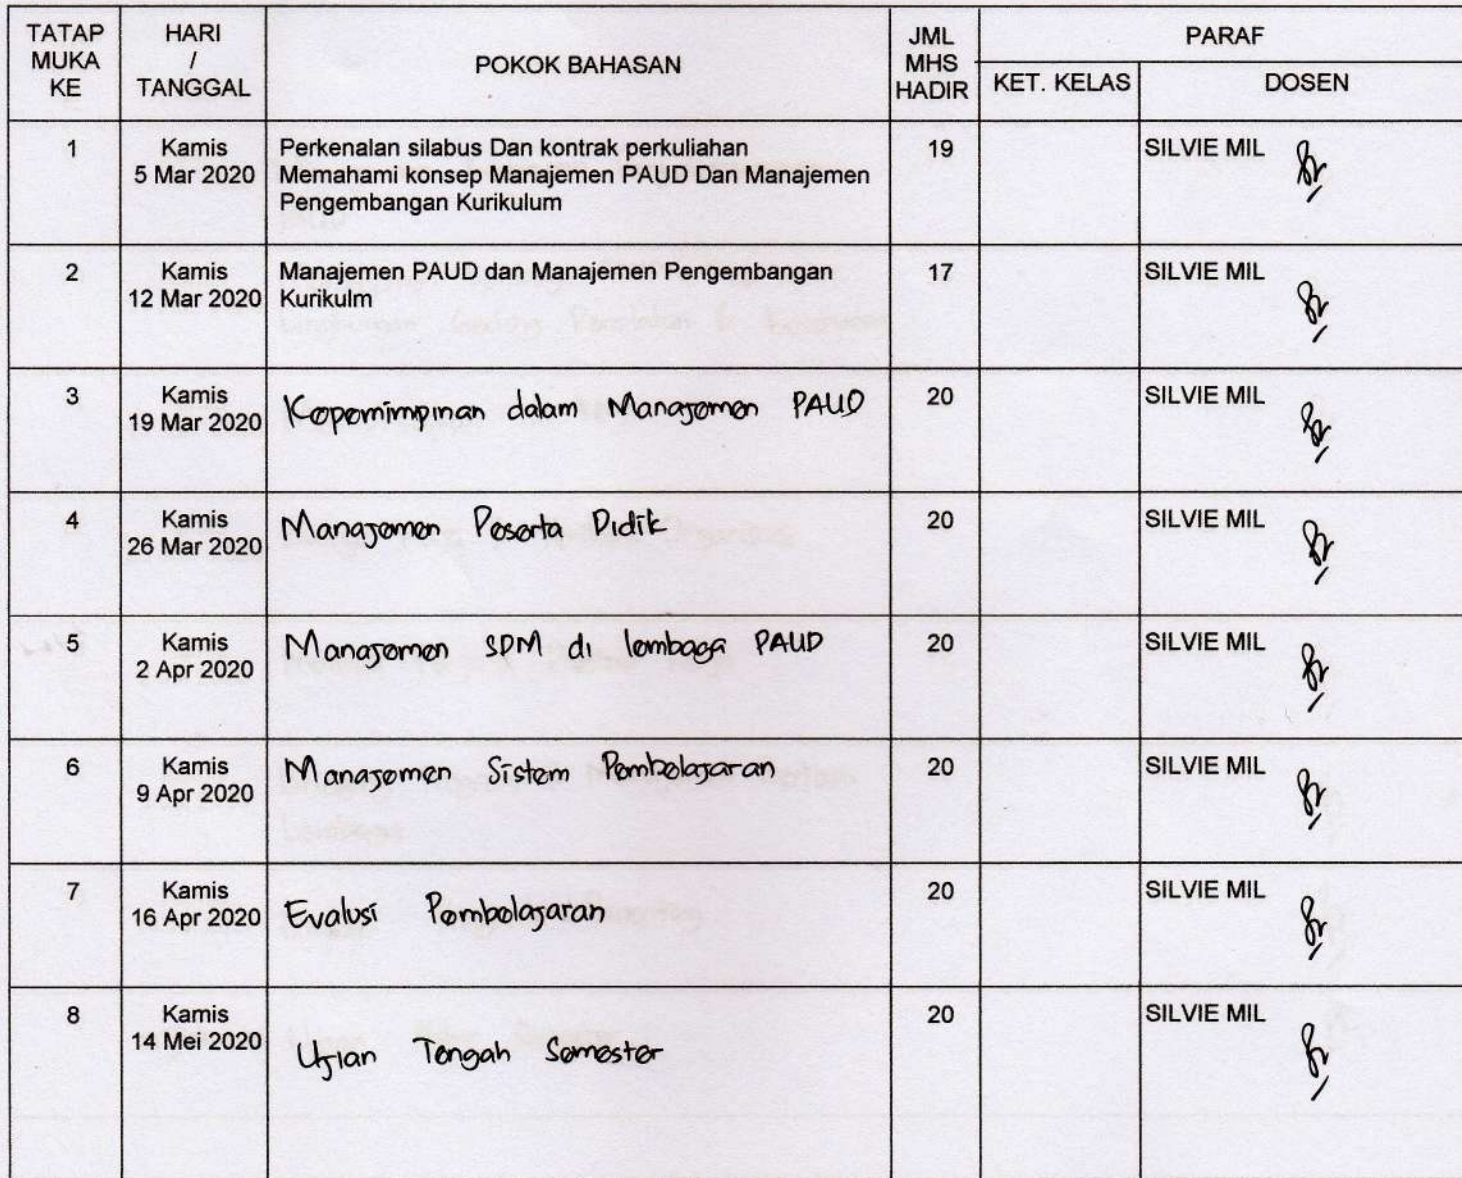 TATAP MUKA KE
HARI / TANGGAL
POKOK BAHASAN
JML MHS HADIR
PARAF
KET. KELAS
DOSEN
1
Kamis
5 Mar 2020
Perkenalan silabus Dan kontrak perkuliahan
Memahami konsep Manajemen PAUD Dan Manajemen
Pengembangan Kurikulum
19
SILVIE MIL
2
Kamis
12 Mar 2020
Manajemen PAUD dan Manajemen Pengembangan
Kurikulm
17
SILVIE MIL
3
Kamis
19 Mar 2020
Kepemimpinan dalam Manajemen PAUD
20
SILVIE MIL
4
Kamis
26 Mar 2020
Manajemen Peserta Didik
20
SILVIE MIL
5
Kamis
2 Apr 2020
Manajemen SDM di lembaga PAUD
20
SILVIE MIL
6
Kamis
9 Apr 2020
Manajemen Sistem Pembelajaran
20
SILVIE MIL
7
Kamis
16 Apr 2020
Evalusi Pembelajaran
20
SILVIE MIL
8
Kamis
14 Mei 2020
Ujian Tengah Semester
20
SILVIE MIL